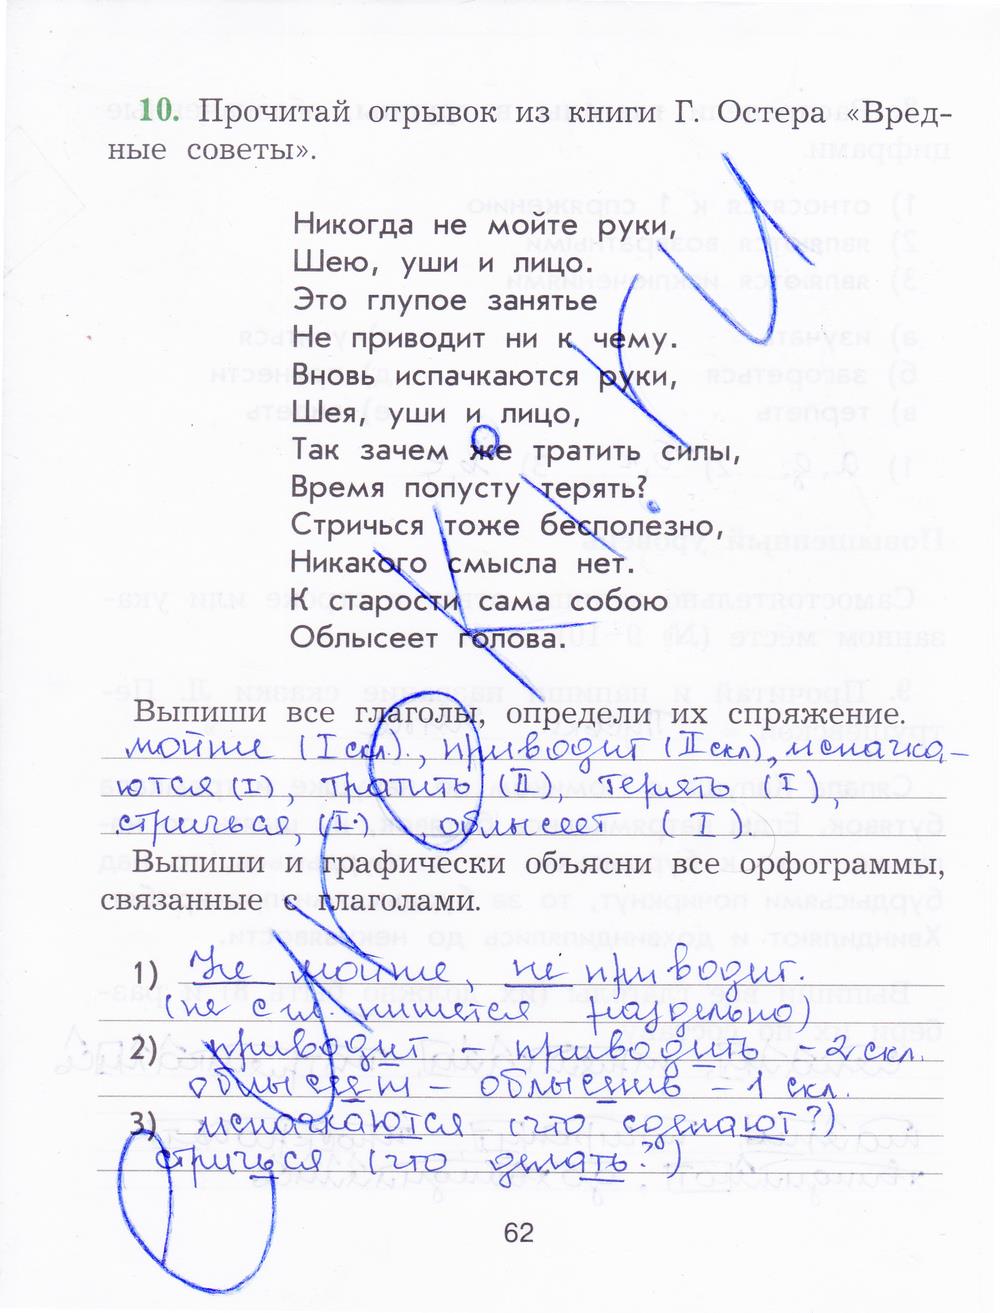 10. Прочитай отрывок из книги Г. Остера «Вред-
ные советы».
Никогда не мойте руки,
Шею, уши и лицо.
Это глупое занятье
Не приводит ни к чему.
Вновь испачкаются руки,
Шея, уши и лицо,
Так зачем же тратить силы,
Время попусту терять?
Стричься тоже бесполезно,
Никакого смысла нет.
К старости сама собою
Облысеет голова.
Выпиши все глаголы, определи их спряжение.
мойте (I скл)., приводит (II скл), испачка-
ются (I), тратить (II), терять (I),
стричься, (I). облысеет (I).
Выпиши и графически объясни все орфограммы,
связанные с глаголами.
1) Не мойте, не приводит.
(не с гл. пишется раздельно)
2) приводит – приводить – 2 скл.
облысеет – облысеть – 1 скл.
3) испачкаются (что сделают?)
стричься (что делать?)
62